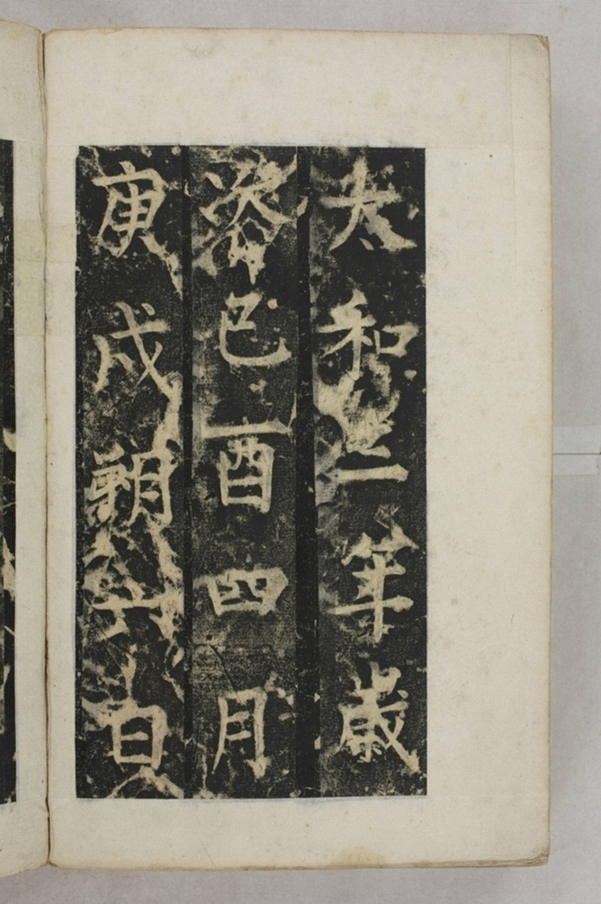 太和三年歲
次己酉四月
庚戌朔六日